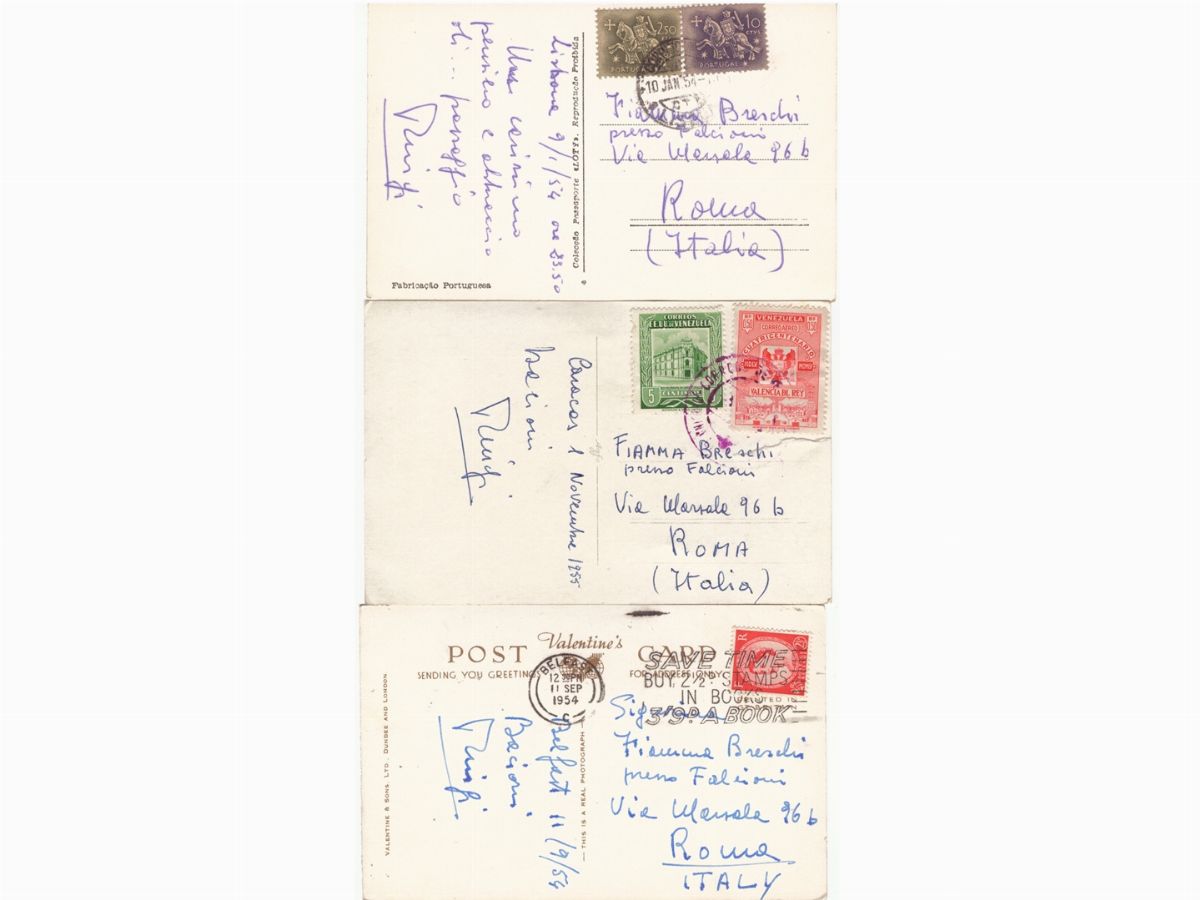 2$50
PORTUGAL
10
CTVS
PORTUGAL
10 JAN 54
Lisbona 9/1/54 ore 23.50
Un carissimo
pensiero e abbraccio
di... passaggio
Luigi
Colecção Passaporte «LOTY». Reprodução Proibida
6
Fabricação Portuguesa
Fiamma Breschi
presso Falcioni
Via Marsala 96 b
Roma
(Italia)
CORREOS
EE.UU. DE VENEZUELA
5
CENTIMOS
VENEZUELA
CORREO AEREO
CUATRICENTENARIO
VALENCIA DEL REY
Caracas 1 Novembre 1955
Bacioni
Luigi
FIAMMA Breschi
presso Falcioni
Via Marsala 96 b
ROMA
(Italia)
Valentine's
POST CARD
SENDING YOU GREETINGS
FOR ADDRESS ONLY
BELFAST
12 PM
11 SEP
1954
C
SAVE TIME
BUY 2½D STAMPS
IN BOOKS
3'9D A BOOK
VALENTINE & SONS, LTD., DUNDEE AND LONDON
THIS IS A REAL PHOTOGRAPH
Belfast 11/9/54
Bacioni
Luigi
Signorina
Fiamma Breschi
presso Falcioni
Via Marsala 96 b
Roma
ITALY